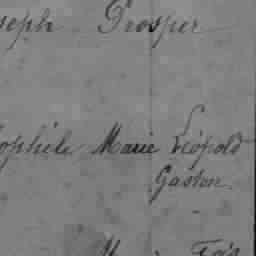 seph Prosper
ophile Marie Léopold
Gaston.